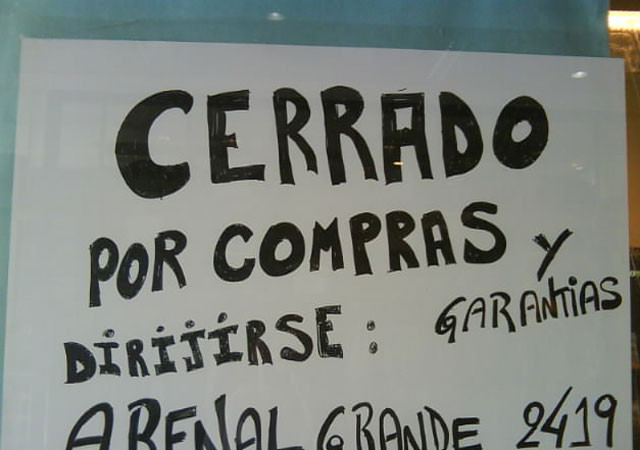 CERRADO
POR COMPRAS Y
GARANTIAS
DIRIJIRSE:
ARENAL GRANDE 2419